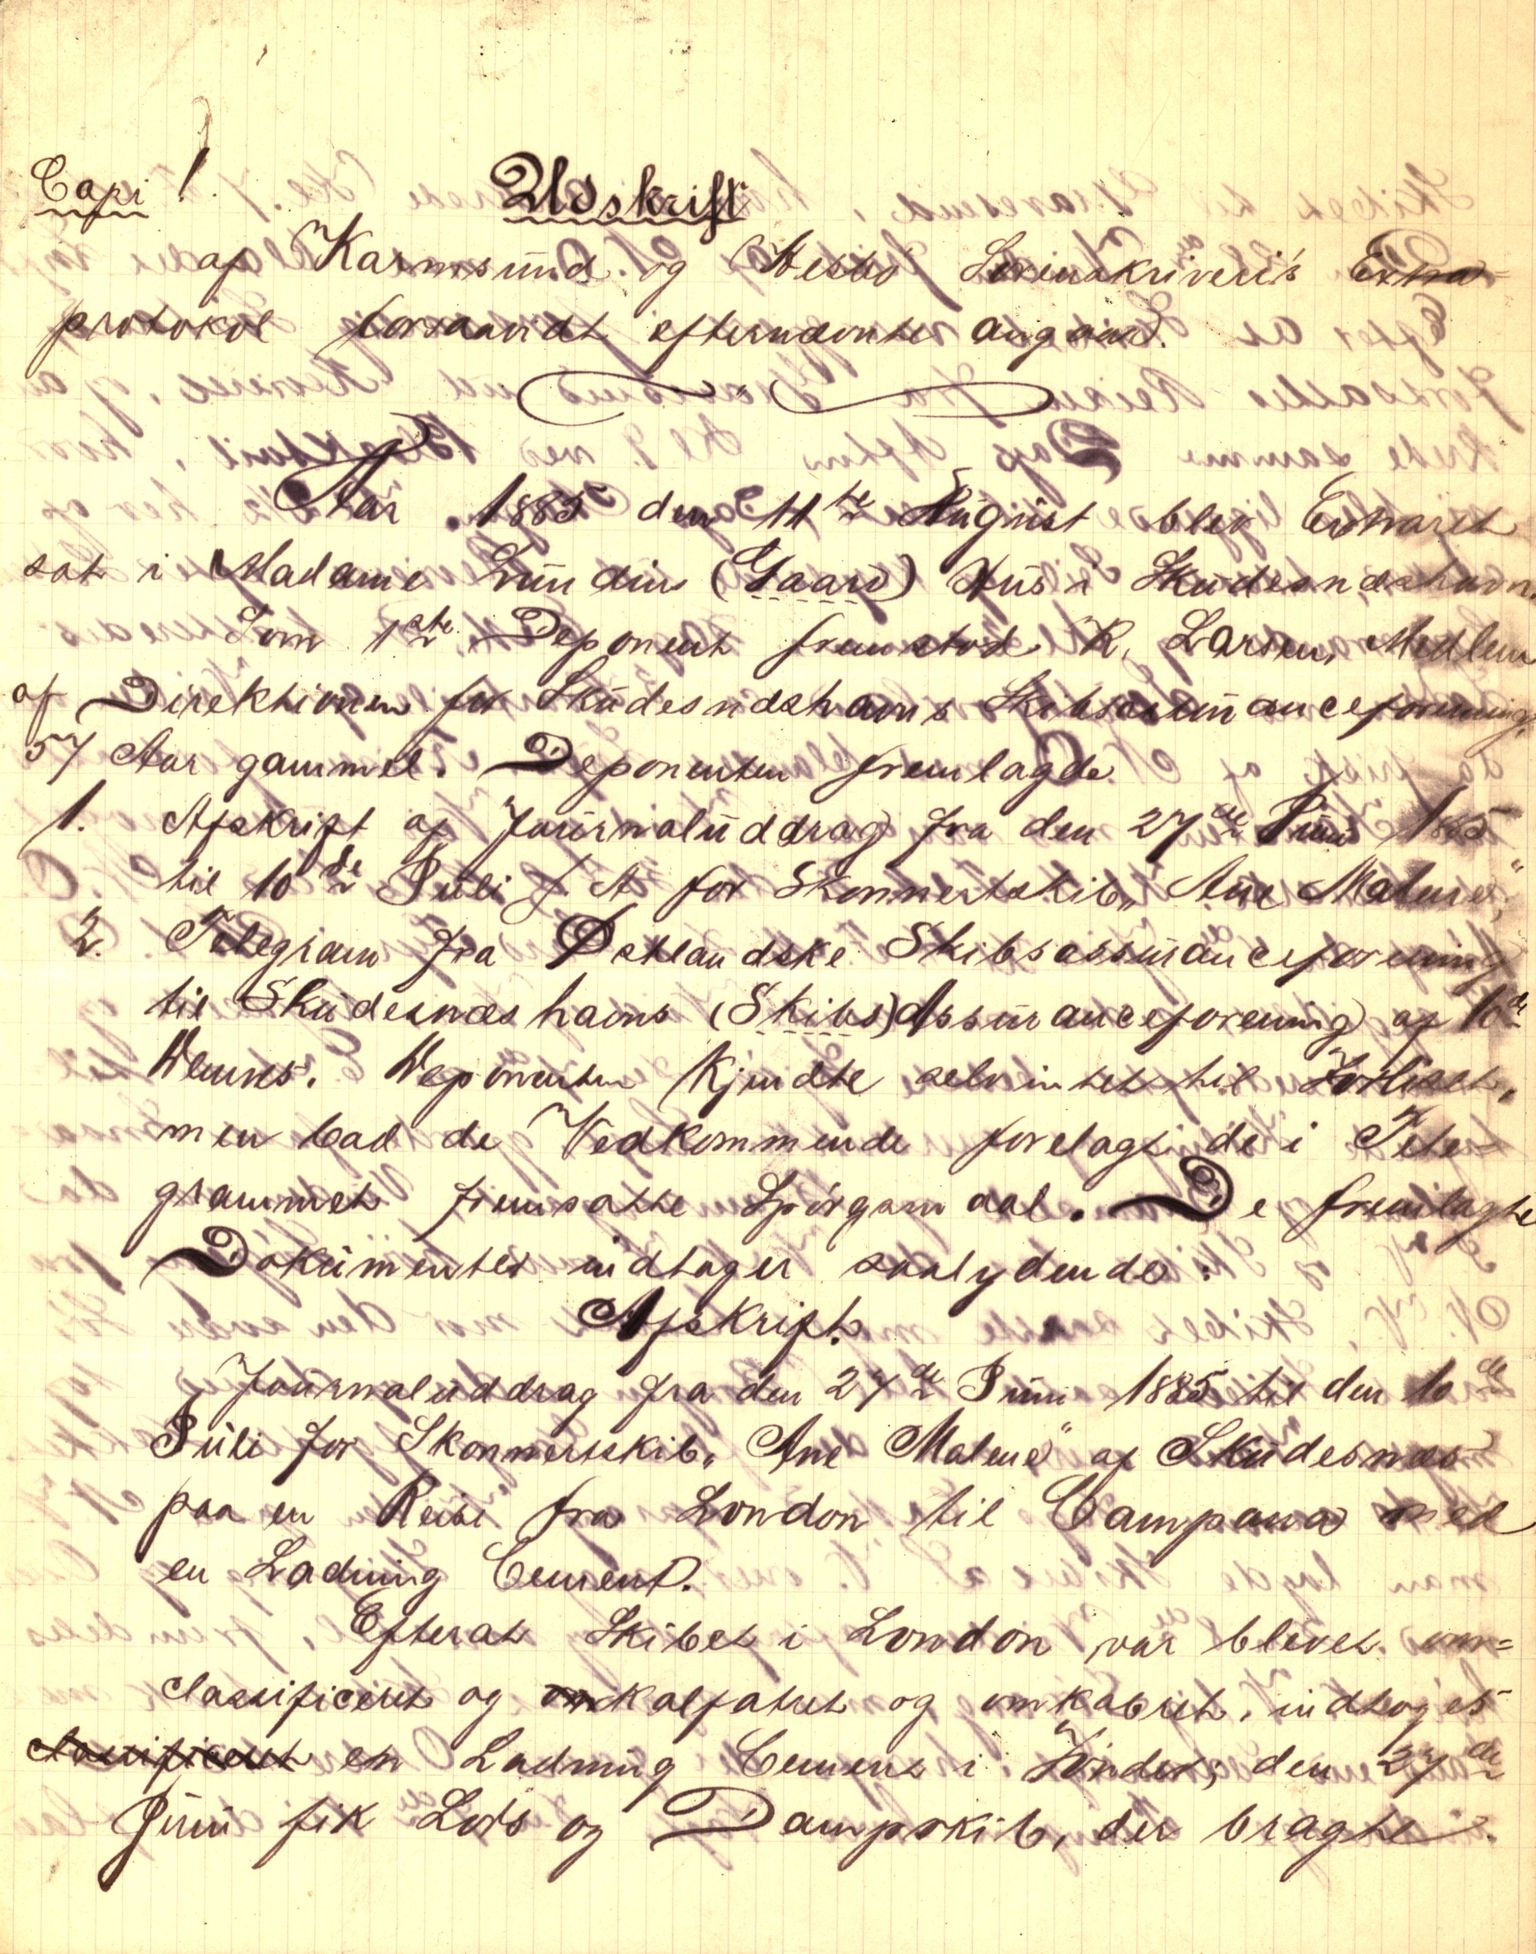 Copi! Udskrift
af Karmsund og Hesbø Sorenskriveri's Extra=
protokol forsaavidt efternævnte angaar.
Aar 1885 den 11te August blev Extraret
sat i Madame Lundins (Gaard) Hus i Skudesnæshavn.
Som 1ste Deponent fremstod R. Larsen, Medlem
af Direktionen for Skudesnæshavns Skibsassuranceforening,
57 Aar gammel. Deponenten fremlagde
1. Afskrift af Journaluddrag fra den 27de Juni 1885
til 10de Juli f. A. for Skonnertskib „Ane Malene“,
2. Telegram fra Østlandske Skibsassuranceforening
til Skudesnæshavns (Skibs)Assuranceforening af 10de
Deponenten kjendte selv intet til Forliset,
men bad de Vedkommende forelagt de i Tele=
grammet fremsatte Spørgsmaal. De fremlagte
Dokumenter indtager saalydende:
Afskrift.
Journaluddrag fra den 27de Juni 1885 til den 10de
Juli for Skonnertskib „Ane Malene“ af Skudesnæs
paa en Reise fra London til Campana med
en Ladning Cement.
Efterat Skibet i London var blevet om=
classificeret og omkalfatret og omkobret, indtoges
classificeret en Ladning Cement i Tønder; den 27de
Juni fik Lods og Dampskib, der bragte